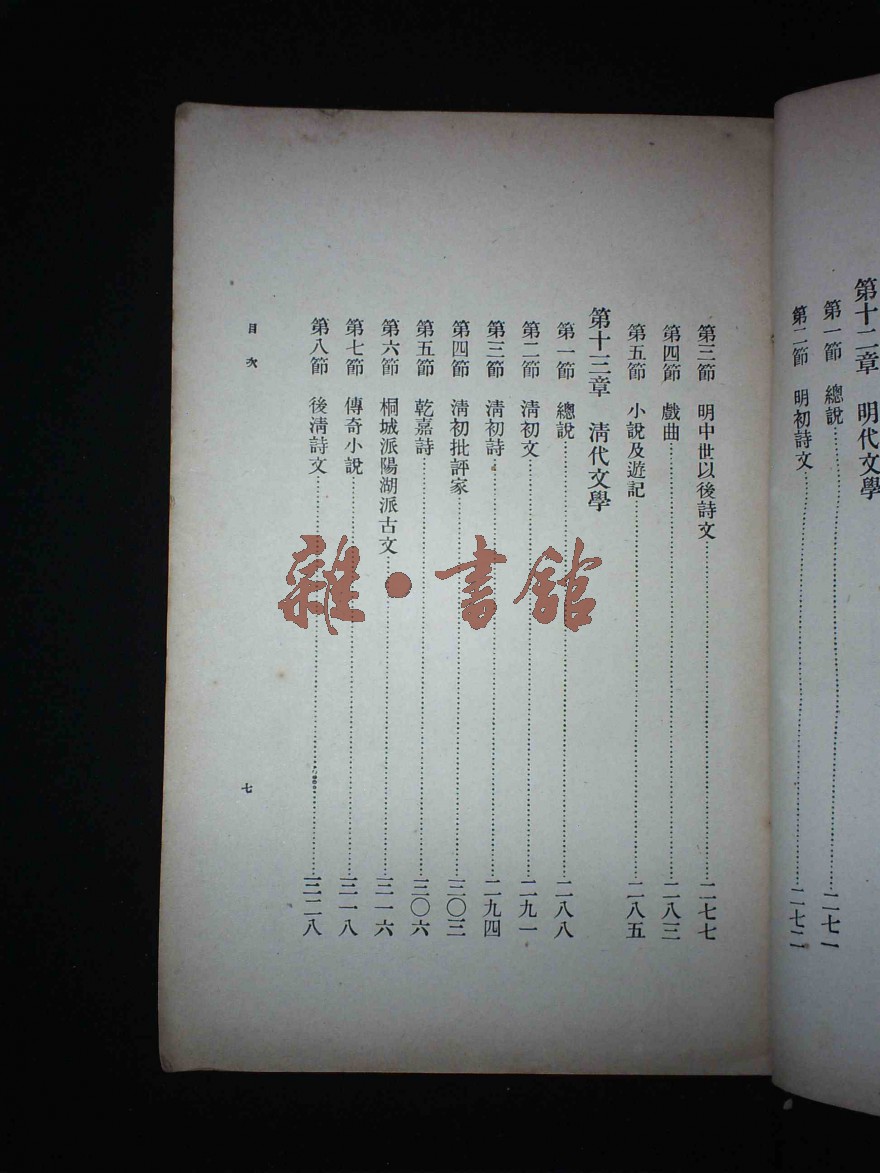 第十二章　明代文學
第一節　總說……二七一
第二節　明初詩文……二七二
第三節　明中世以後詩文……二七七
第四節　戲曲……二八三
第五節　小說及遊記……二八五
第十三章　清代文學
第一節　總說……二八八
第二節　清初文……二九一
第三節　清初詩……二九四
第四節　清初批評家……三〇三
第五節　乾嘉詩……三〇六
第六節　桐城派陽湖派古文……三一六
第七節　傳奇小說……三一八
第八節　後清詩文……三二八
目次
七
雜·書館